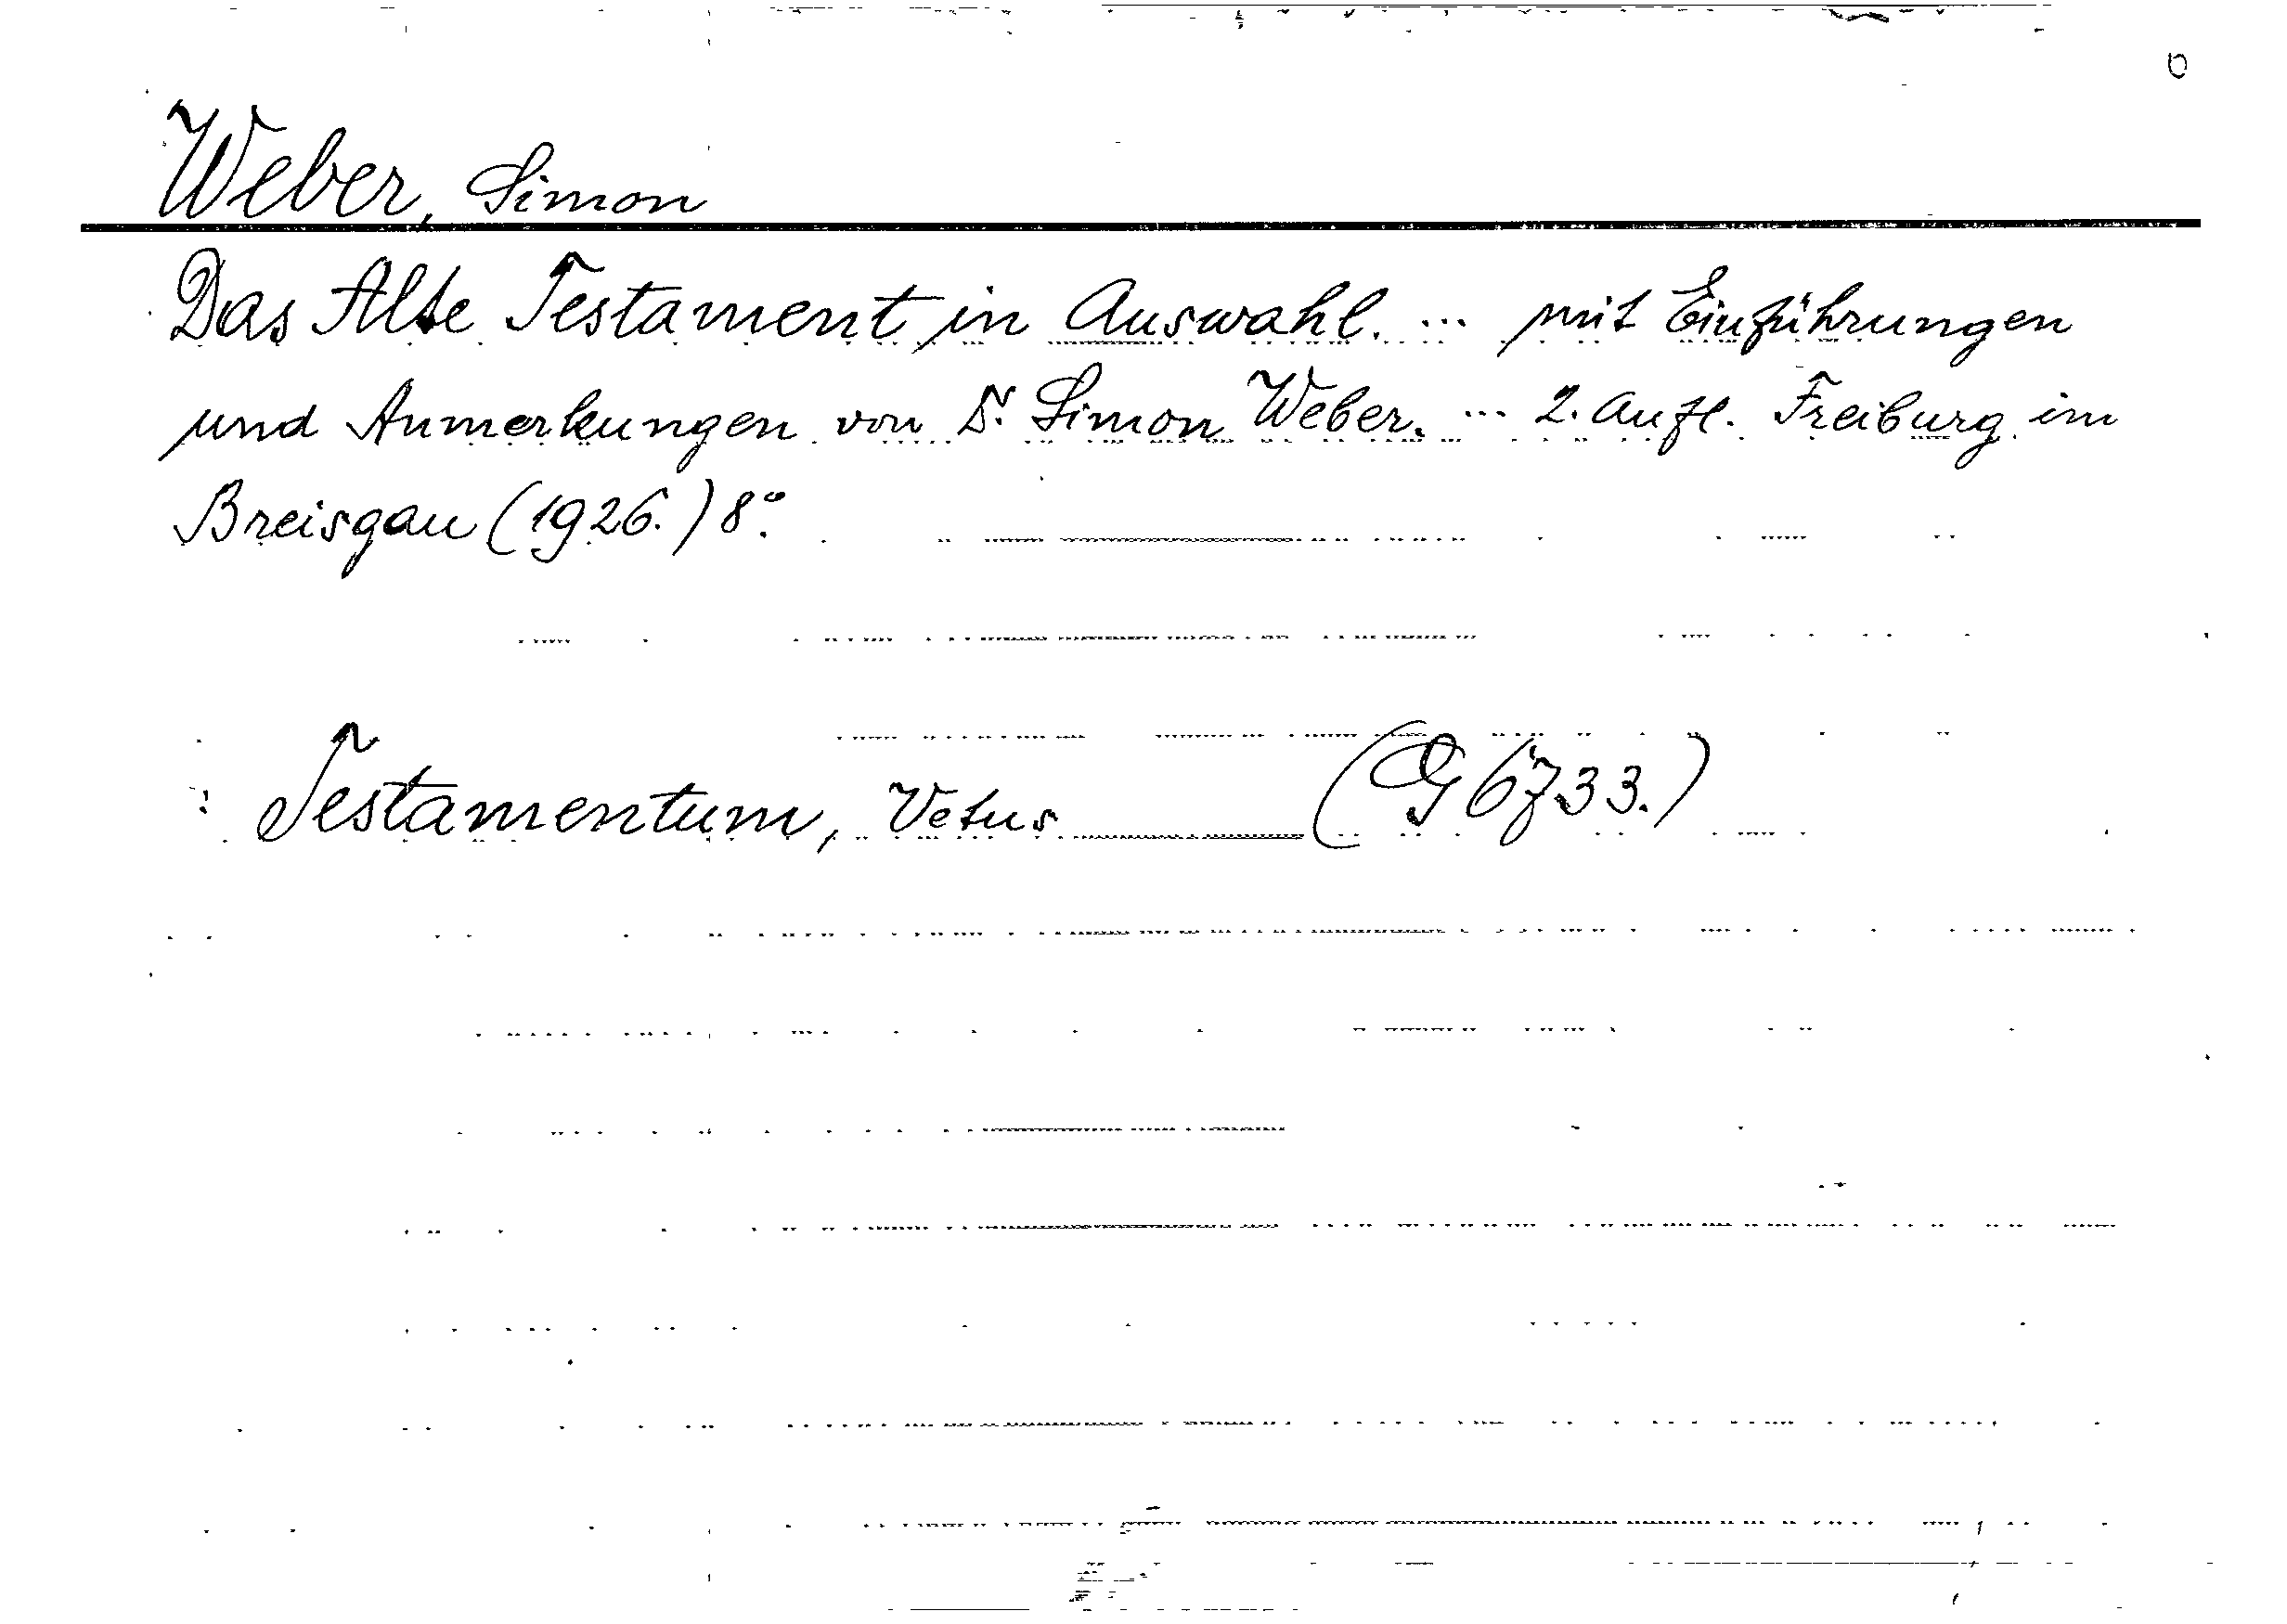 Weber, Simon
Das Alte Testament in Auswahl. ... mit Einführungen
und Anmerkungen von Dr. Simon Weber. ... 2. Aufl. Freiburg im
Breisgau (1926.) 8°.
Testamentum, Vetus (G 6733.)